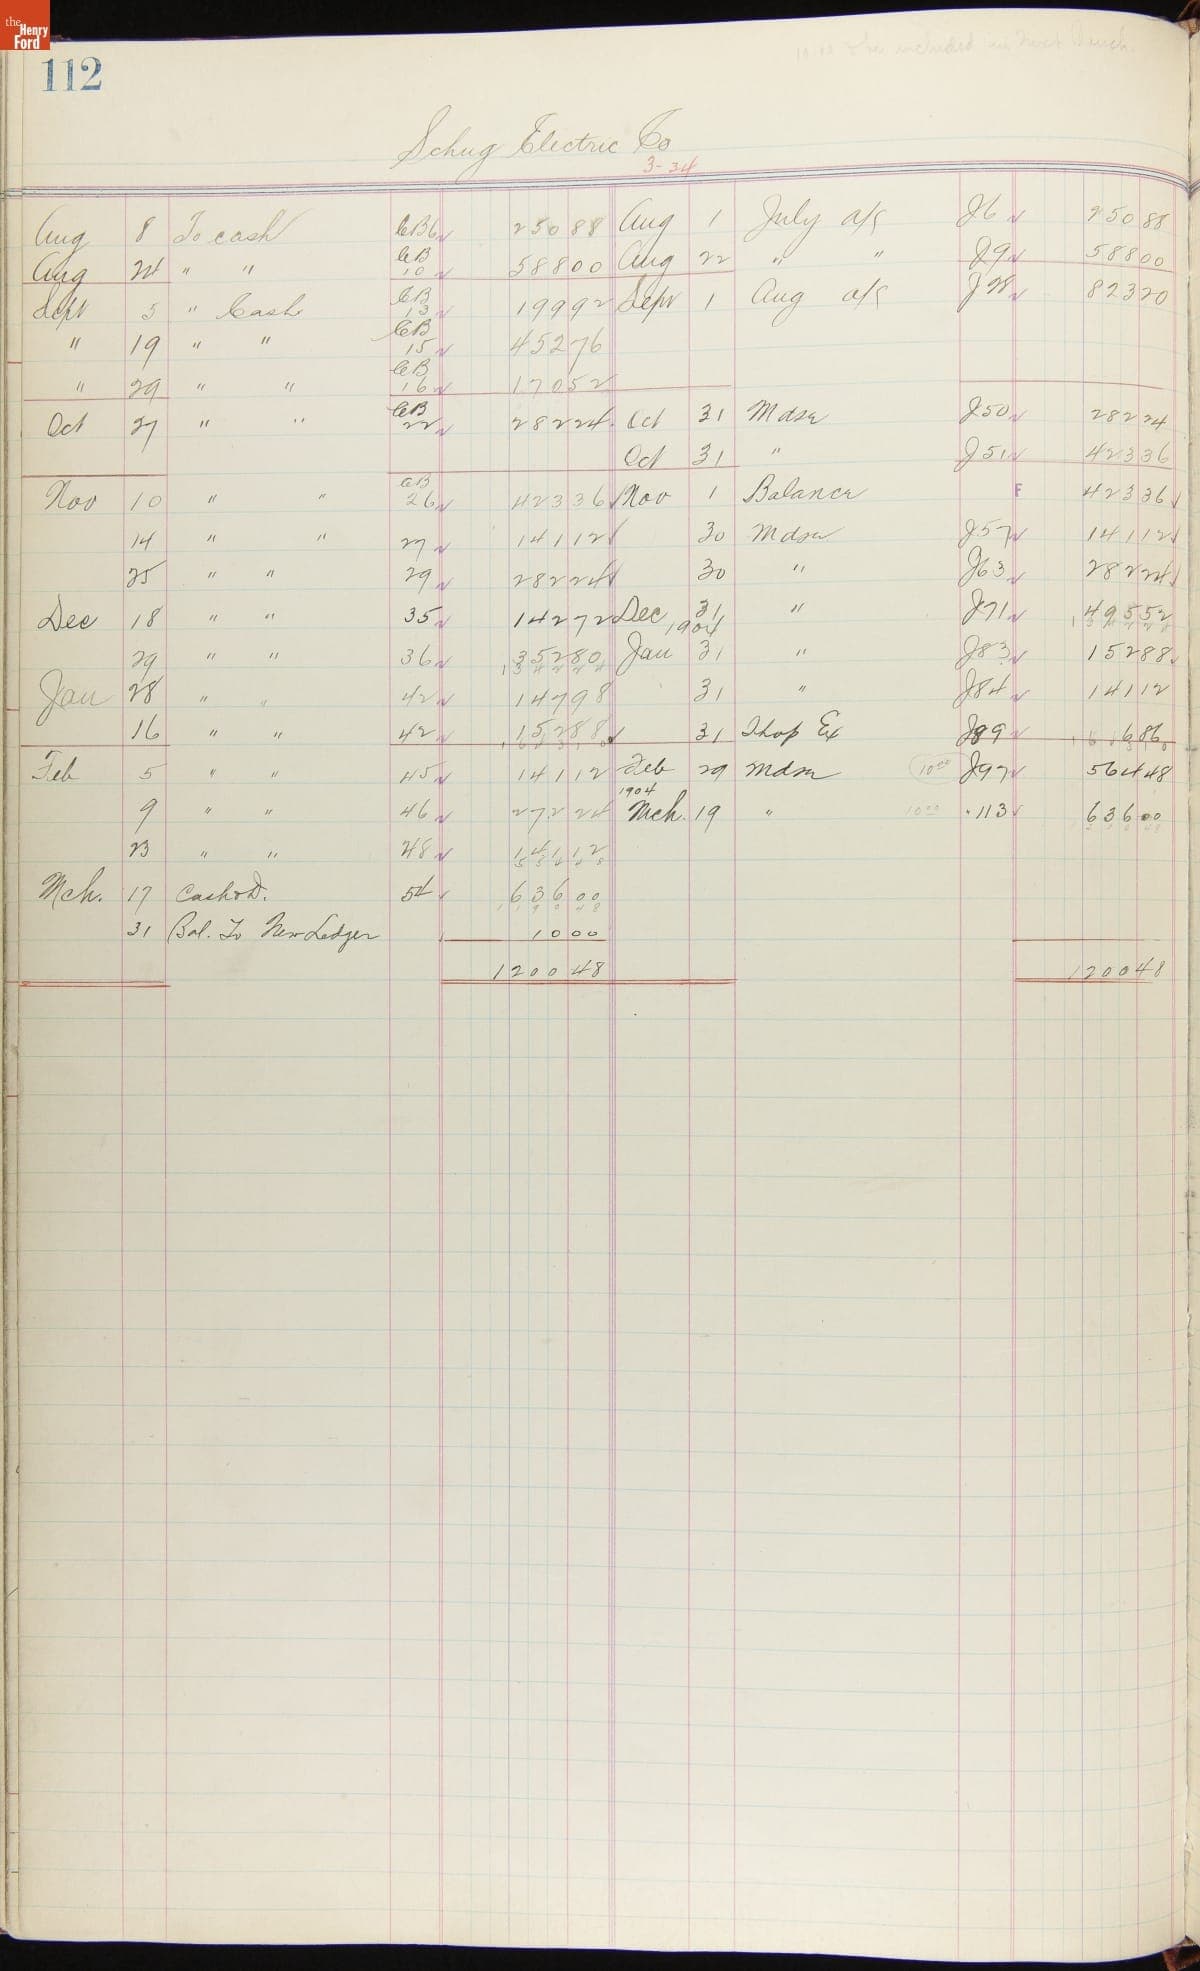 the Henry Ford
112
Schug Electric Co
3-34
Aug 8 To cash CB6 250 88 Aug 1 July a/c J6 250 88
Aug 24 " " CB 10 588 00 Aug 22 " " J9 588 00
Sept 5 " Cash CB 13 199 92 Sept 1 Aug a/c J28 823 20
" 19 " " CB 15 452 76
" 29 " " CB 16 170 52
Oct 27 " " CB 22 282 24 Oct 31 Mdse J50 282 24
Oct 31 " J51 423 36
Nov 10 " " CB 26 423 36 Nov 1 Balance F 423 36
14 " " 27 141 12 30 Mdse J57 141 12
25 " " 29 282 24 30 " J63 282 24
Dec 18 " " 35 142 72 Dec 31 " J71 495 52
1904
29 " " 36 352 80 Jan 31 " J83 152 88
Jan 28 " " 42 147 98 31 " J84 141 12
16 " " 42 152 88 31 Shop Ex J89 6 86
Feb 5 " " 45 141 12 Feb 29 Mdse 10 00 J97 564 48
1904
9 " " 46 272 24 Mch. 19 " 10 00 " 113 636 00
23 " " 48 141 12
Mch. 17 Cash & D. 54 636 00
31 Bal. To New Ledger 10 00
1200 48 1200 48